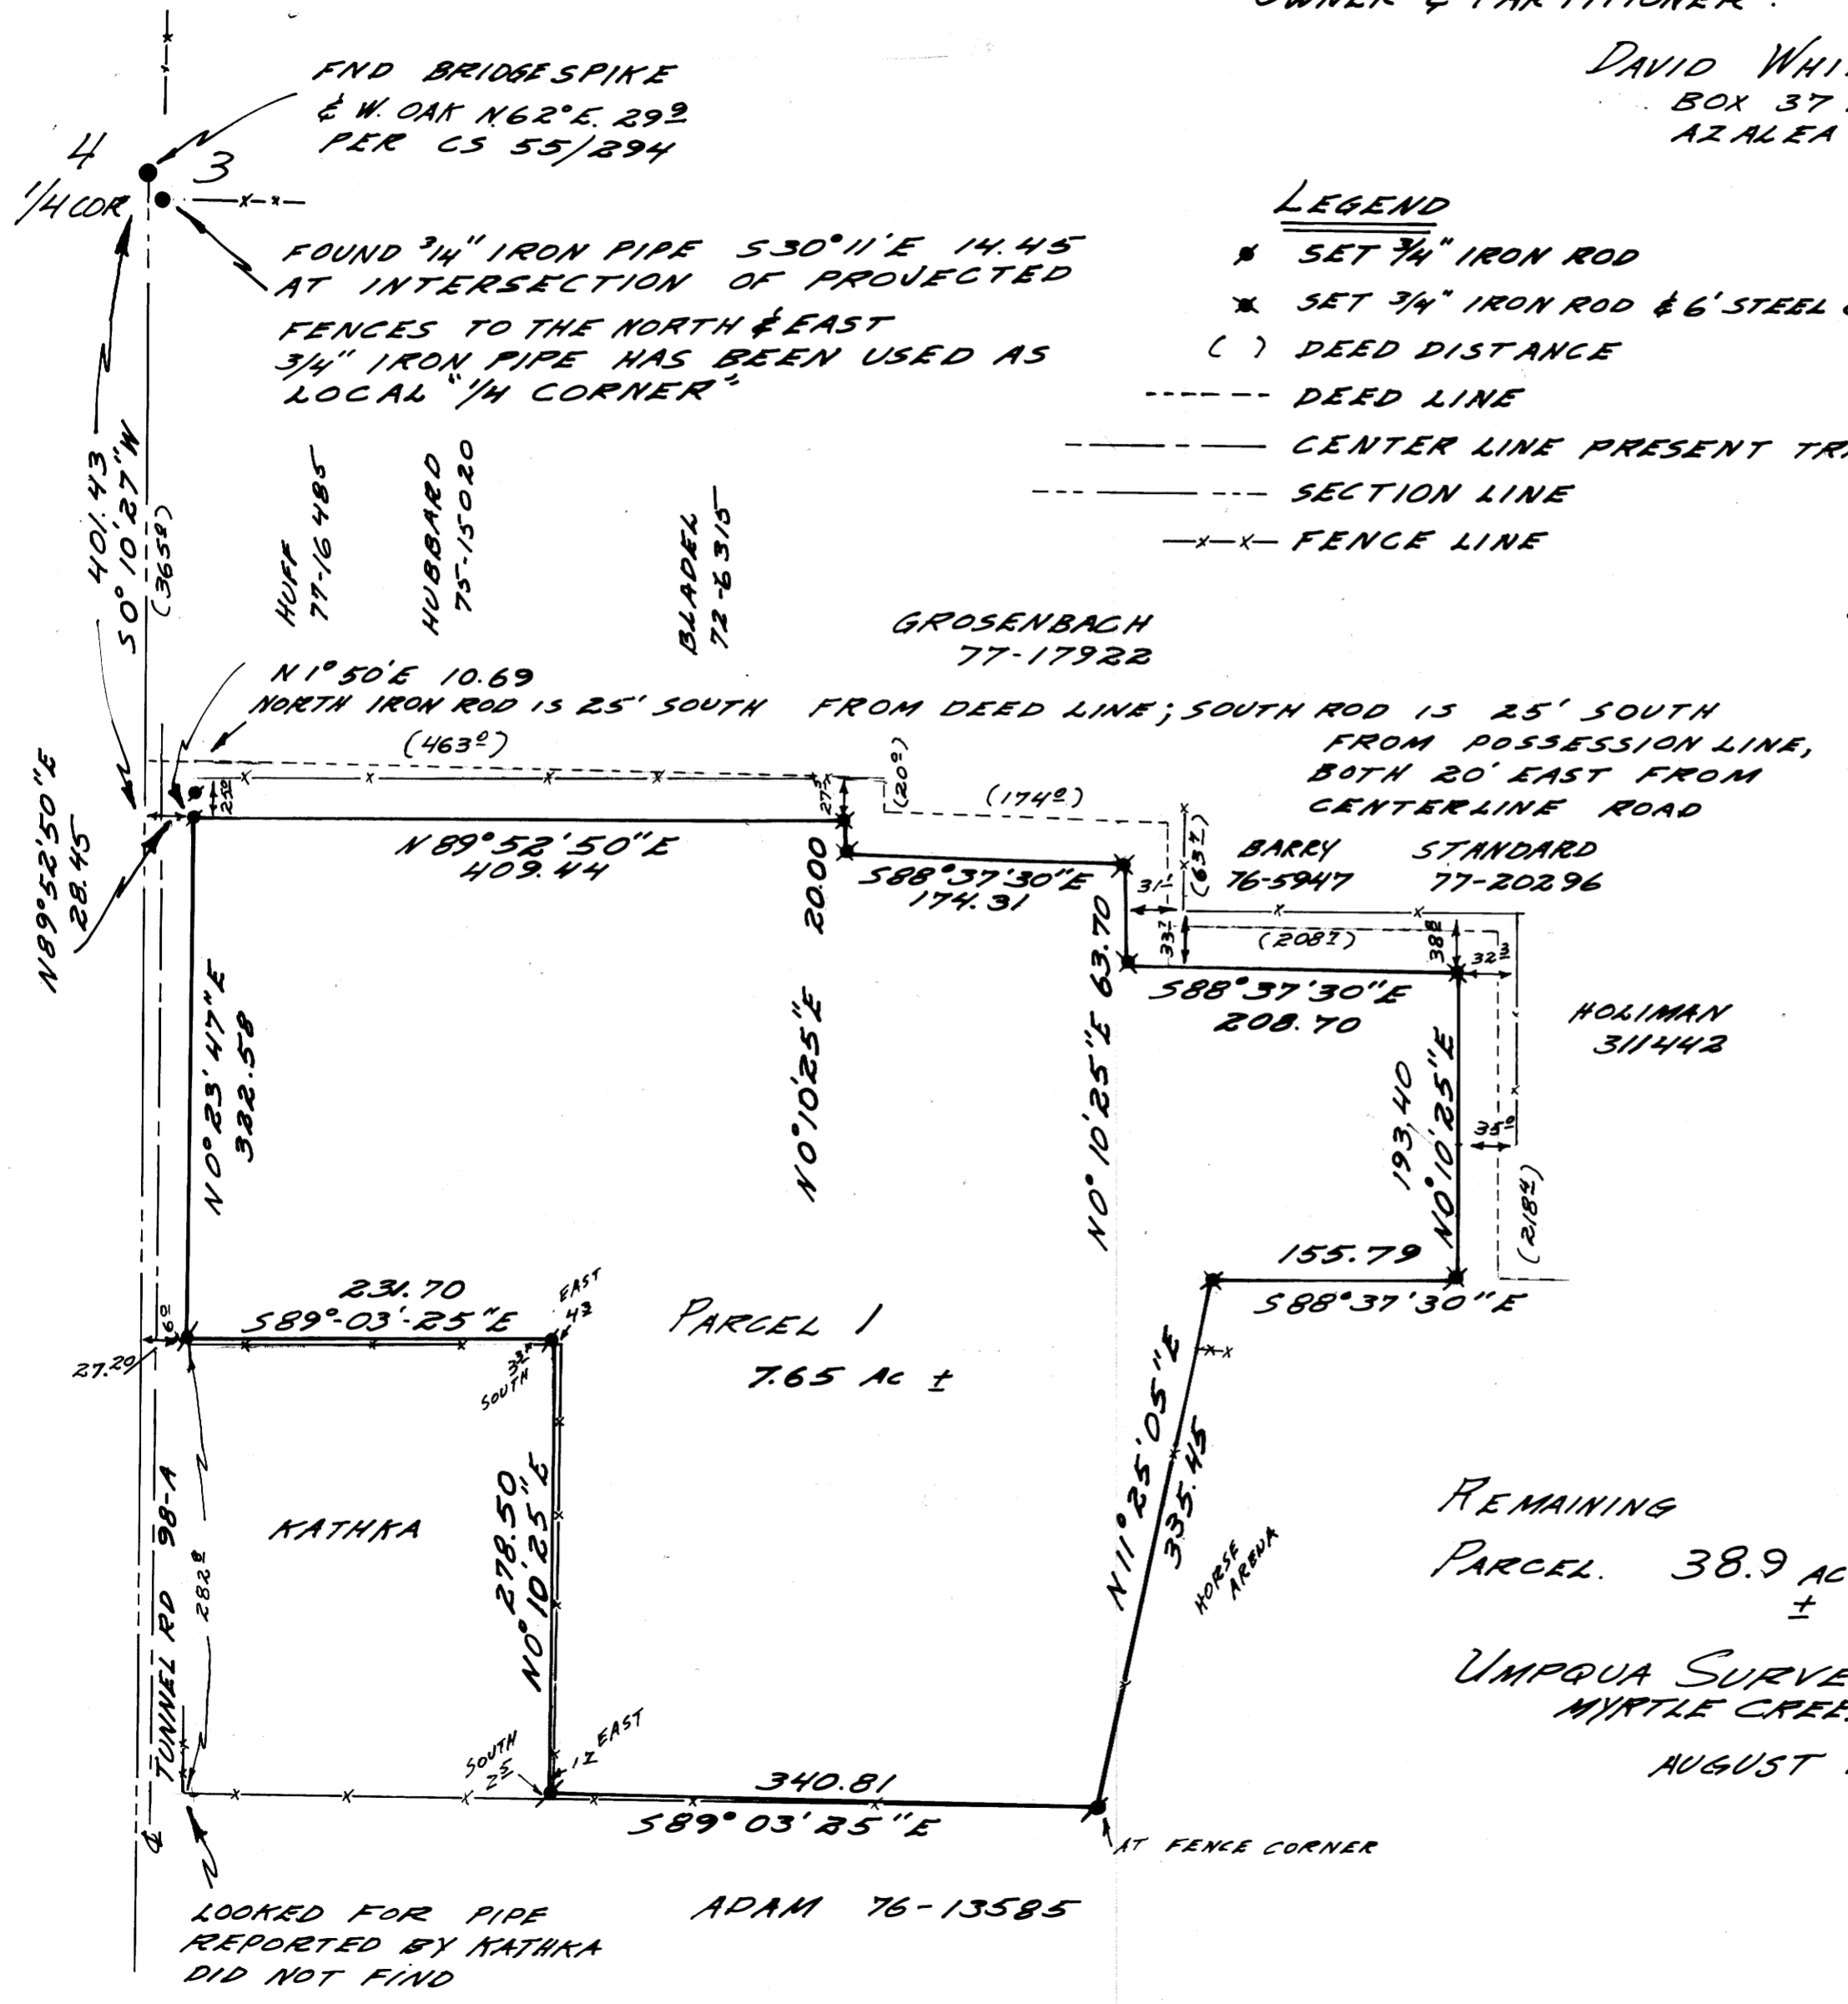 OWNER & PARTITIONER:
DAVID
BOX 37
AZALEA
FND BRIDGE SPIKE
& W. OAK N62°E. 29⁹
PER CS 55/294
4
3
1/4 COR
FOUND 3/4" IRON PIPE S30°11'E 14.45
AT INTERSECTION OF PROJECTED
FENCES TO THE NORTH & EAST
3/4" IRON PIPE HAS BEEN USED AS
LOCAL "1/4 CORNER"
LEGEND
SET 3/4" IRON ROD
SET 3/4" IRON ROD & 6' STEEL
( ) DEED DISTANCE
DEED LINE
CENTER LINE PRESENT
SECTION LINE
—x—x— FENCE LINE
401.43
S0°10'27"W
(365⁸)
HUFF
77-16485
HUBBARD
75-15020
BLADEL
72-6315
GROSENBACH
77-17922
N1°50'E 10.69
NORTH IRON ROD IS 25' SOUTH FROM DEED LINE; SOUTH ROD IS 25' SOUTH
FROM POSSESSION LINE,
BOTH 20' EAST FROM
CENTERLINE ROAD
(463⁰)
(20⁰)
(174⁰)
(63⁷)
25⁰
27³
N89°52'50"E
28.45
N89°52'50"E
409.44
20.00
N0°10'25"E
S88°37'30"E
174.31
BARRY
76-5947
STANDARD
77-20296
31-
33⁷
(208⁷)
38⁸
32³
N0°10'25"E 63.70
S88°37'30"E
208.70
HOLIMAN
311442
N0°23'47"E
322.58
193.40
N0°10'25"E
35⁰
(218⁴)
155.79
S88°37'30"E
231.70
S89°-03'-25"E
EAST
4³
SOUTH
16⁰
27.20
PARCEL 1
7.65 AC ±
N11°25'05"E
335.45
HORSE
ARENA
KATHKA
278.50
N0°10'25"E
TUNNEL RD 98-A
282⁸
REMAINING
PARCEL. 38.9 AC
±
UMPQUA
MYRTLE
AUGUST
SOUTH
2⁵
1⁷ EAST
340.81
S89°03'25"E
℄
AT FENCE CORNER
LOOKED FOR PIPE
REPORTED BY KATHKA
DID NOT FIND
ADAM 76-13585